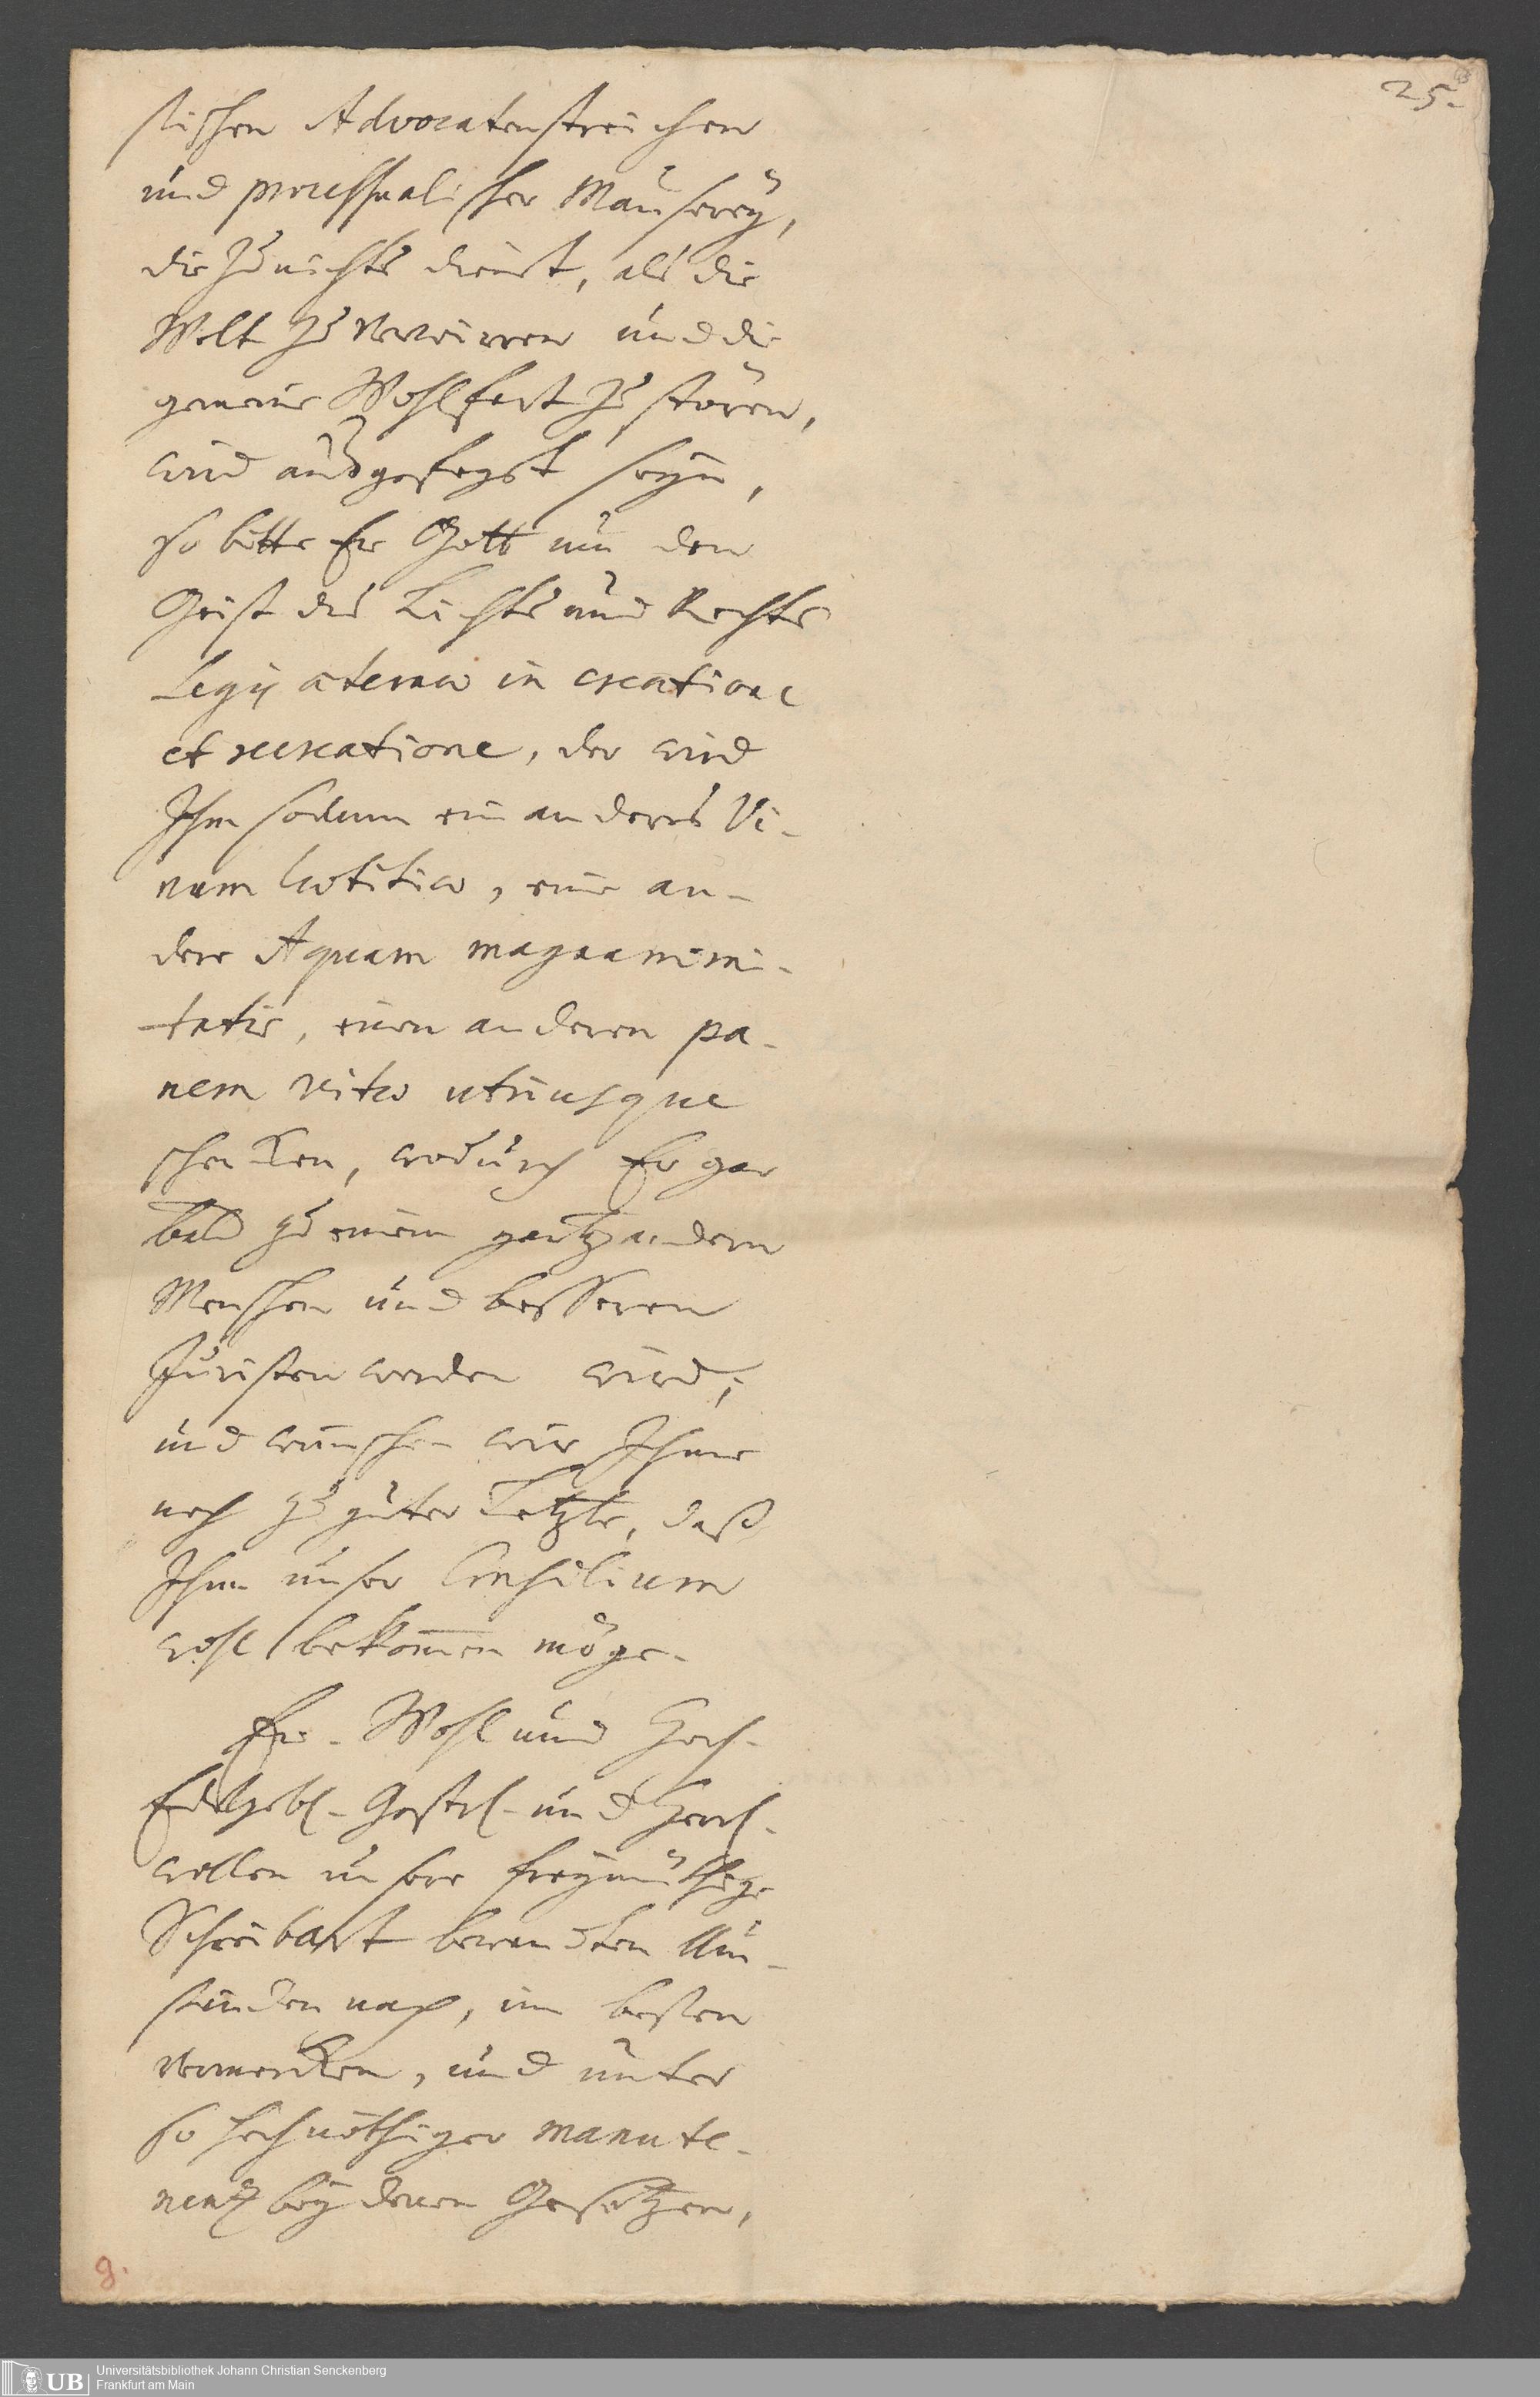 25.
stischen Advocatenstreichen
und processualischer Mauserey,
die zu nichts dienet, als die
Welt zu verwirren und die
gemeine Wohlfart zu stören,
wird ausgefegst seyn,
so bitte Er Gott um den
Geist des Lichts und Rechts
Legis æternæ in creatione
et recreatione, der wird
Ihm sodann ein anderes Vi-
num lætitiæ, eine an-
dere Aquam magnanimi-
tatis, einen anderen pa-
nem vitæ utriusque
schencken, wodurch Er gar
bald zu einem gantz andern
Menschen und besseren
Juristen werden wird;
und wünschen wir Ihme
noch zu guter Letzte, daß
Ihm unser Consilium
wohl bekom̄en möge.
Ew. Wohl und Hoch-
Edelgebl. Gestrl. und Herrl.
wollen unsere freymüthige
Schreibart bewandten Um-
ständen nach, im besten
vermercken, und unter
so hochnöthiger manute-
nentz bey denen Gesetzen,
9.
UB
Universitätsbibliothek Johann Christian Senckenberg
Frankfurt am Main